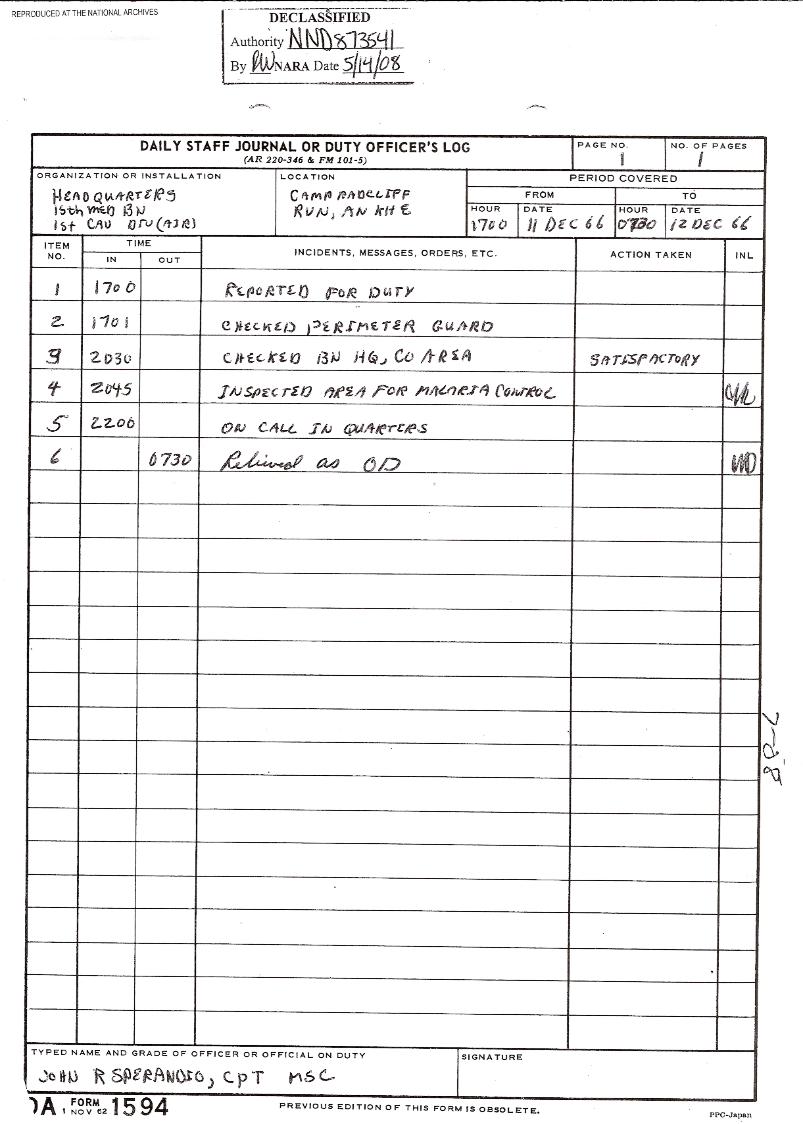 REPRODUCED AT THE NATIONAL ARCHIVES
DECLASSIFIED
Authority NND873541
By RW NARA Date 5/14/08
DAILY STAFF JOURNAL OR DUTY OFFICER'S LOG
(AR 220-346 & FM 101-5)
PAGE NO.
1
NO. OF PAGES
1
ORGANIZATION OR INSTALLATION
HEADQUARTERS
15th MED BN
1st CAV DIV (AIR)
LOCATION
CAMP RADCLIFF
RUN, AN KHE
PERIOD COVERED
FROM TO
HOUR DATE HOUR DATE
1700 11 DEC 66 0730 12 DEC 66
ITEM NO. TIME INCIDENTS, MESSAGES, ORDERS, ETC. ACTION TAKEN INL
IN OUT
1 1700 REPORTED FOR DUTY
2 1701 CHECKED PERIMETER GUARD
3 2030 CHECKED BN HQ, CO AREA SATISFACTORY
4 2045 INSPECTED AREA FOR MALARIA CONTROL
5 2200 ON CALL IN QUARTERS
6 0730 Relieved as OD
7-28
TYPED NAME AND GRADE OF OFFICER OR OFFICIAL ON DUTY
JOHN R SPERANDIO, CPT MSC
SIGNATURE
DA FORM 1 NOV 62 1594
PREVIOUS EDITION OF THIS FORM IS OBSOLETE.
PPC-Japan